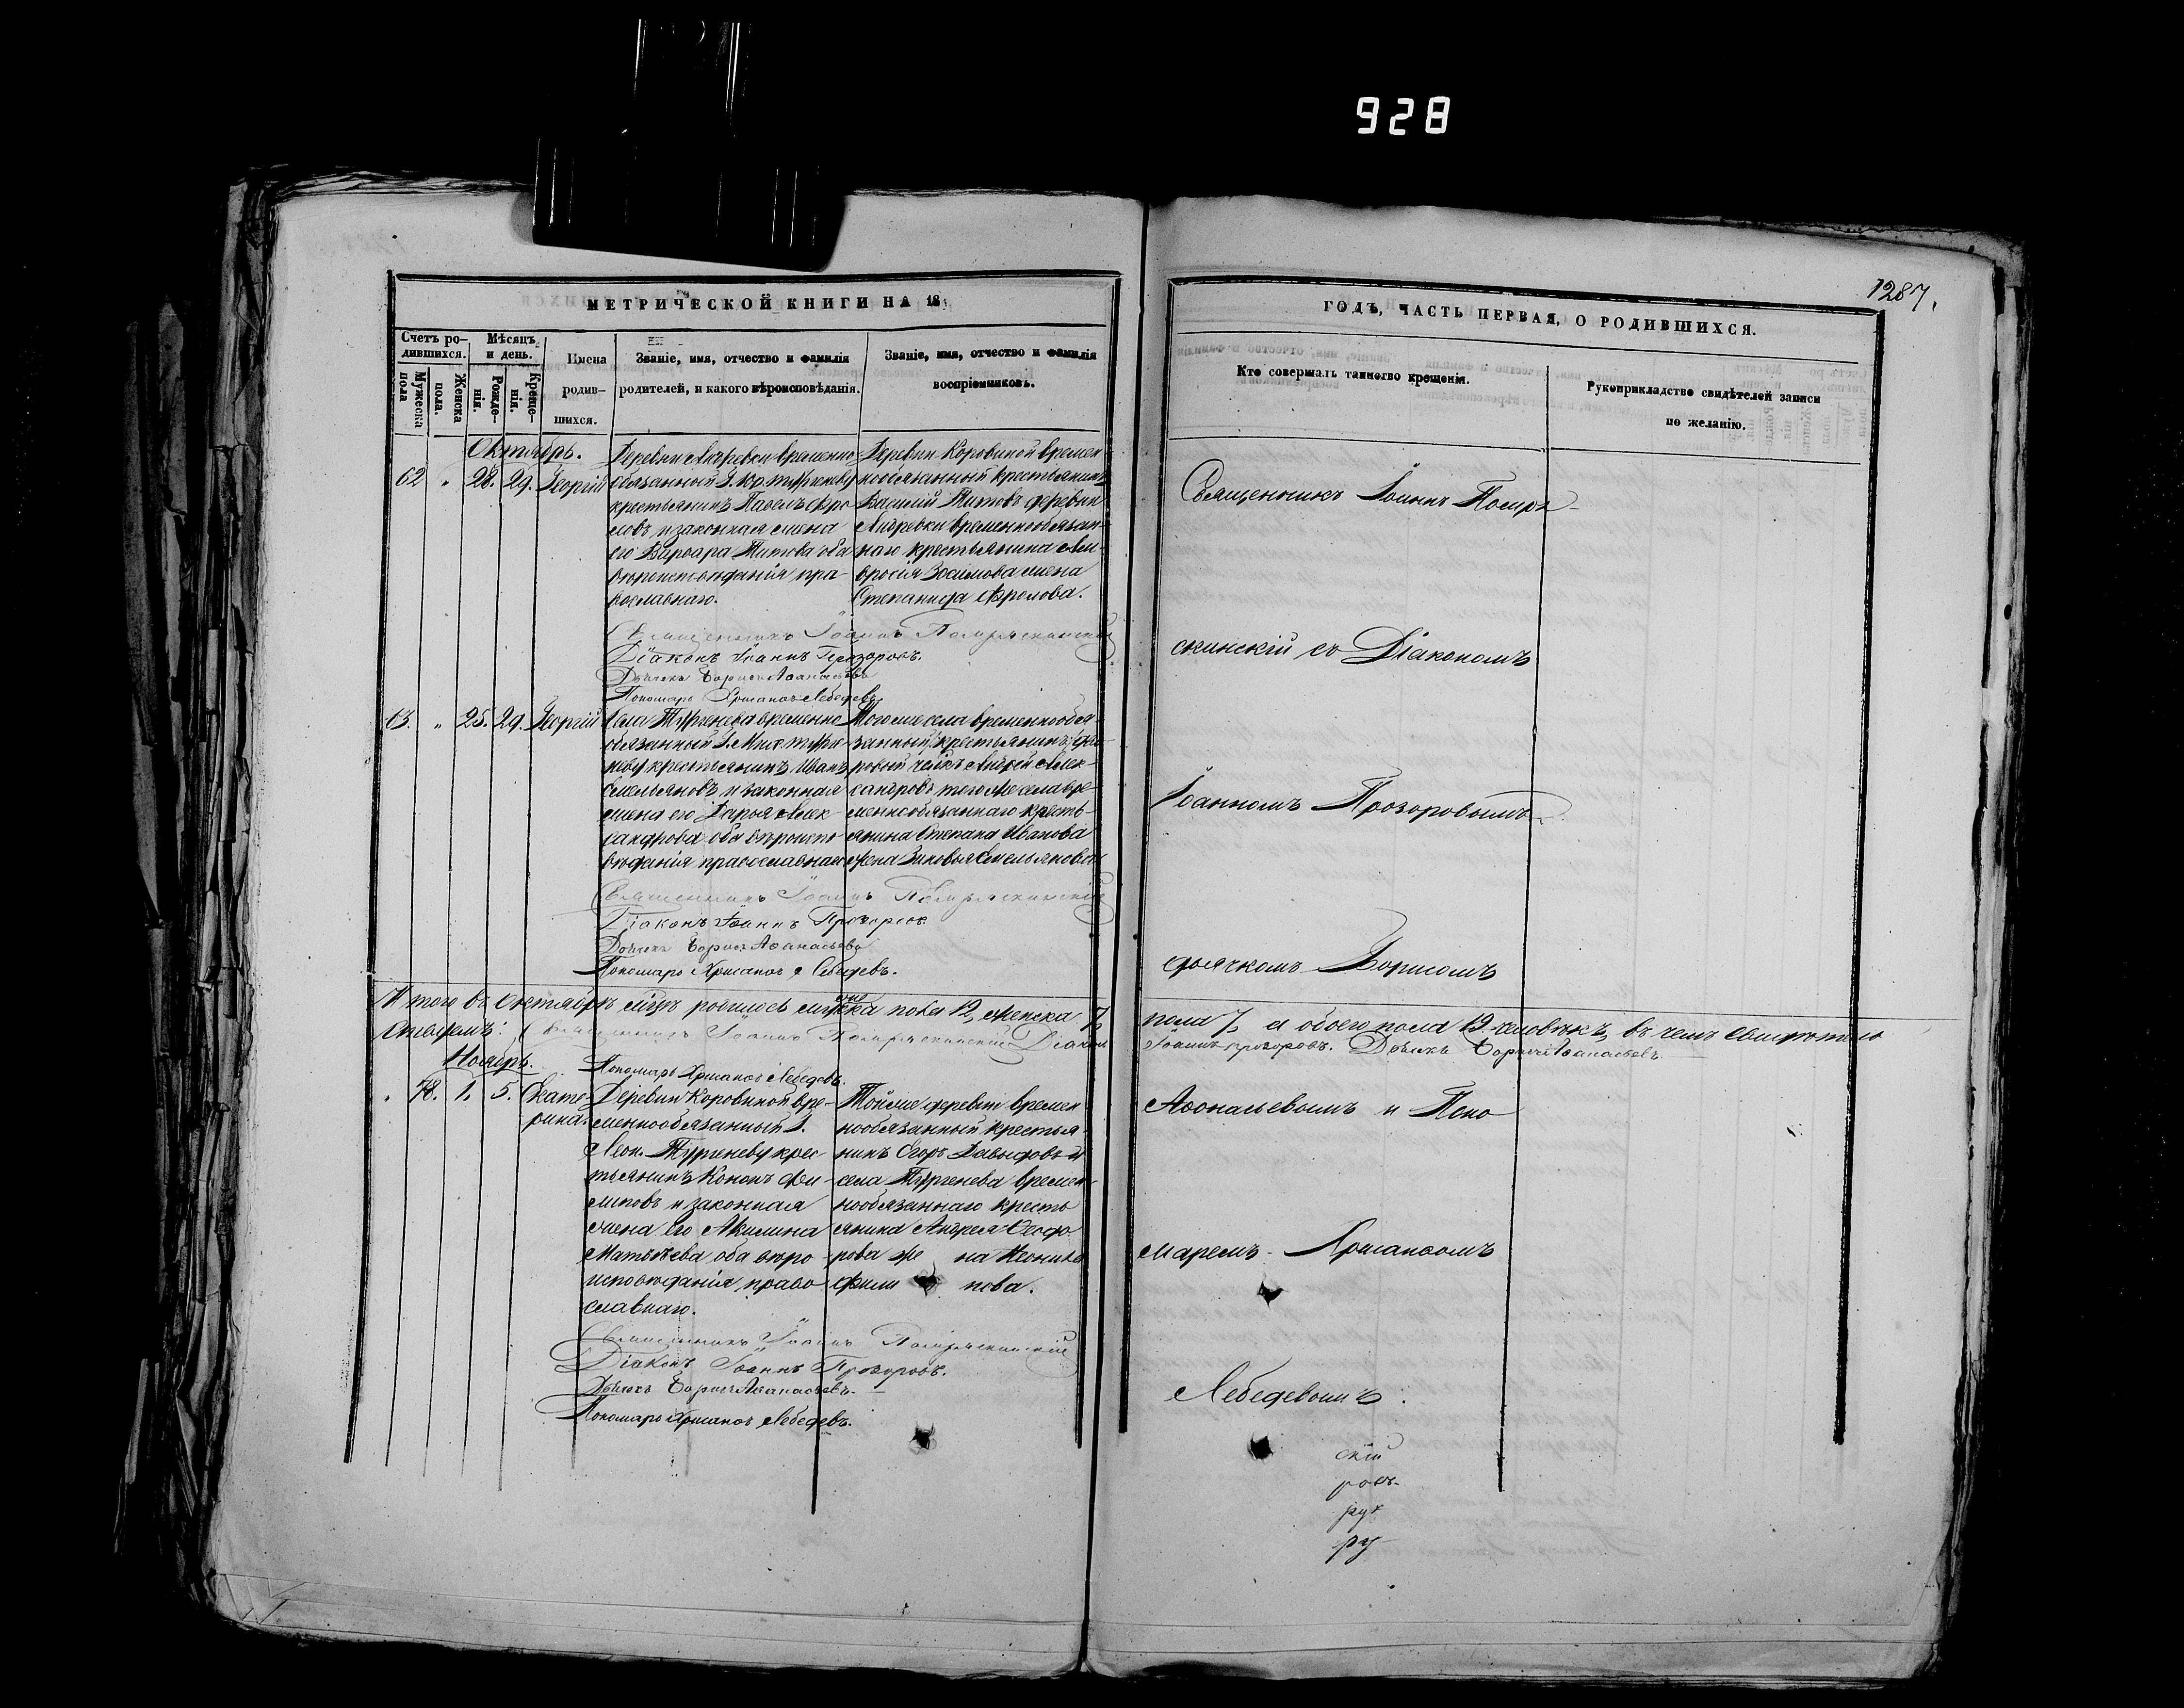 928
1287.
МЕТРИЧЕСКОЙ КНИГИ НА 18
ГОДЪ, ЧАСТЬ ПЕРВАЯ, О РОДИВШИХСЯ.
Счетъ ро-
дившихся.
Мужеска
пола
Женска
пола.
Мѣсяцъ
и день.
Рожде-
нія.
Креще-
нія.
Имена
родив-
шихся.
Званіе, имя, отчество и фамилія
родителей, и какого вѣроисповѣданія.
Званіе, имя, отчество и фамилія
воспріемниковъ.
Кто совершалъ таинство крещенія.
Рукоприкладство свидѣтелей записи
по желанію.
Октябрь.
62 " 28. 29. Георгій
Деревни Андревки временно
обязанный Г. Юр. Тургеневу
крестьянинъ Павелъ Фро
ловъ и законная жена
его Варвара Титова оба
вѣроисповѣданія пра-
вославнаго.
Деревни Коровиной времен
нообязанный крестьянинъ
Василій Титовъ деревни
Андревки временнообязан-
наго крестьянина Ам-
вросія Зосимова жена
Степанида Фролова.
Священникъ Іоаннъ Помряскинскій
Діаконъ Іоаннъ Прозоровъ.
Дьячекъ Борисъ Аѳанасьевъ
Пономарь Хрисанѳъ Лебедевъ.
63. " 25. 29. Георгій
Села Тургенева временно
обязанный Г. Мих. Турге-
неву крестьянинъ Иванъ
Емельяновъ и законная
жена его Дарья Алек
сандрова оба вѣроиспо
вѣданія православнаго
Того же села временнообя
занный крестьянинъ дво
ровый челкъ Андрей Алек-
сандровъ того же села вре-
меннообязаннаго кресть-
янина Степана Иванова
жена Зиновья Емельянова
Священникъ Іоаннъ Помряскинскій
Діаконъ Іоаннъ Прозоровъ
Дьячекъ Борисъ Аѳанасьевъ
Пономарь Хрисанѳъ Лебедевъ.
Итого въ Октябрѣ мѣцѣ родилось мужеска пола 12, женска 7,
пола 7, а обоего пола 19 человѣкъ, въ чемъ свидѣтель
ствуемъ: Священникъ Іоаннъ Помряскинскій Діаконъ
Іоаннъ Прозоровъ. Дьячекъ Борисъ Аѳанасьевъ.
Пономарь Хрисанѳъ Лебедевъ.
Ноябрь.
" 78. 1. 5. Екате-
рина.
Деревни Коровиной вре-
меннообязанный Г.
Леон. Тургеневу крес-
тьянинъ Кононъ Фи-
липовъ и законная
жена его Акилина
Матвѣева оба вѣро
исповѣданія право
славнаго.
Той же деревни времен
нообязанный крестья
нинъ Егоръ Давыдовъ и
села Тургенева времен-
нообязаннаго кресть
янина Андрея Ѳедо
рова же на Неонила
Фили пова.
Священникъ Іоаннъ Помряскинскій
Діаконъ Іоаннъ Прозоровъ.
Дьячекъ Борисъ Аѳанасьевъ.
Пономарь Хрисанѳъ Лебедевъ.
Священникъ Іоаннъ Помря-
скинскій съ Діакономъ
Іоанномъ Прозоровымъ
дьячкомъ Борисомъ
Аѳонасьевымъ и Поно
маремъ Хрисанѳомъ
Лебедевымъ.
скій
ровъ
рук
ру